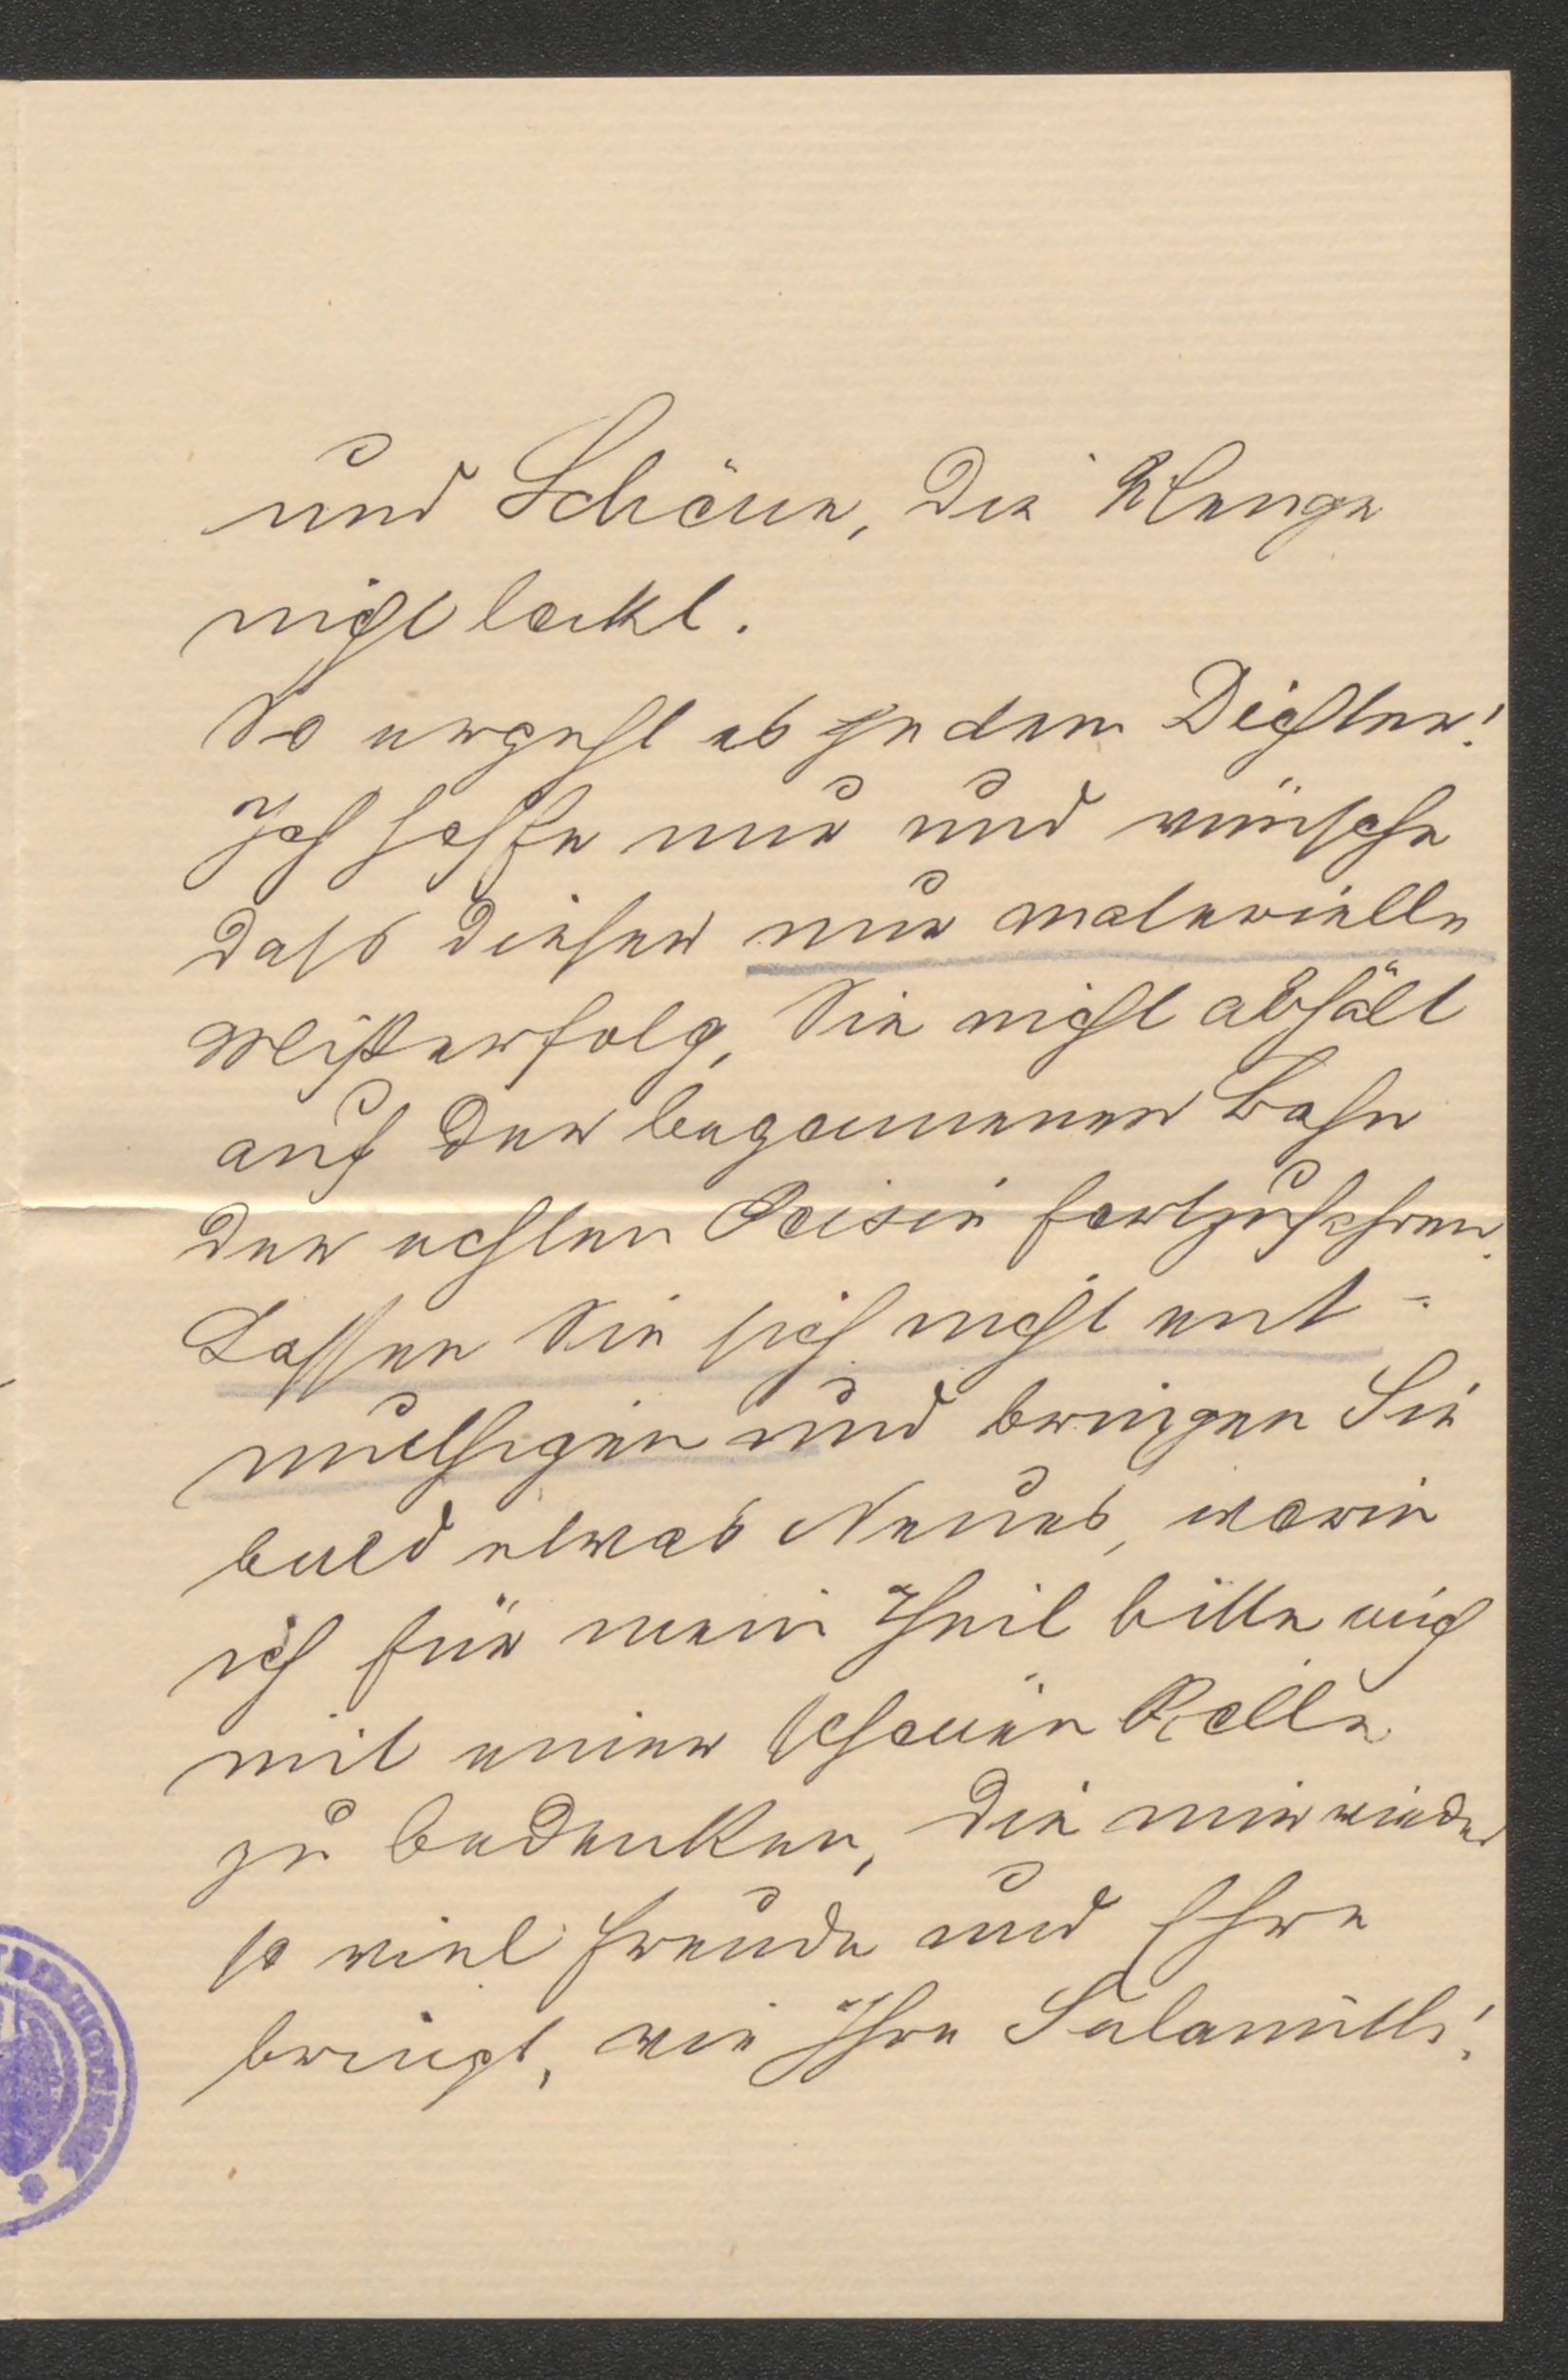 und Schöne, die Menge
nicht lockt.
So ergeht es jedem Dichter!
Ich hoffe nur und wünsche
daß dieser nur materielle
Mißerfolg, Sie nicht abhält
auf der begonnenen Bahn
der echten Poisie fortzufahren.
Lassen Sie sich nicht ent-
muthigen und bringen Sie
bald etwas Neues, worin
ich für mein Theil bitte mich
mit einer schönen Rolle
zu bedenken, die mir wieder
so viel Freude und Ehre
bringt, wie Ihre Sulamith!